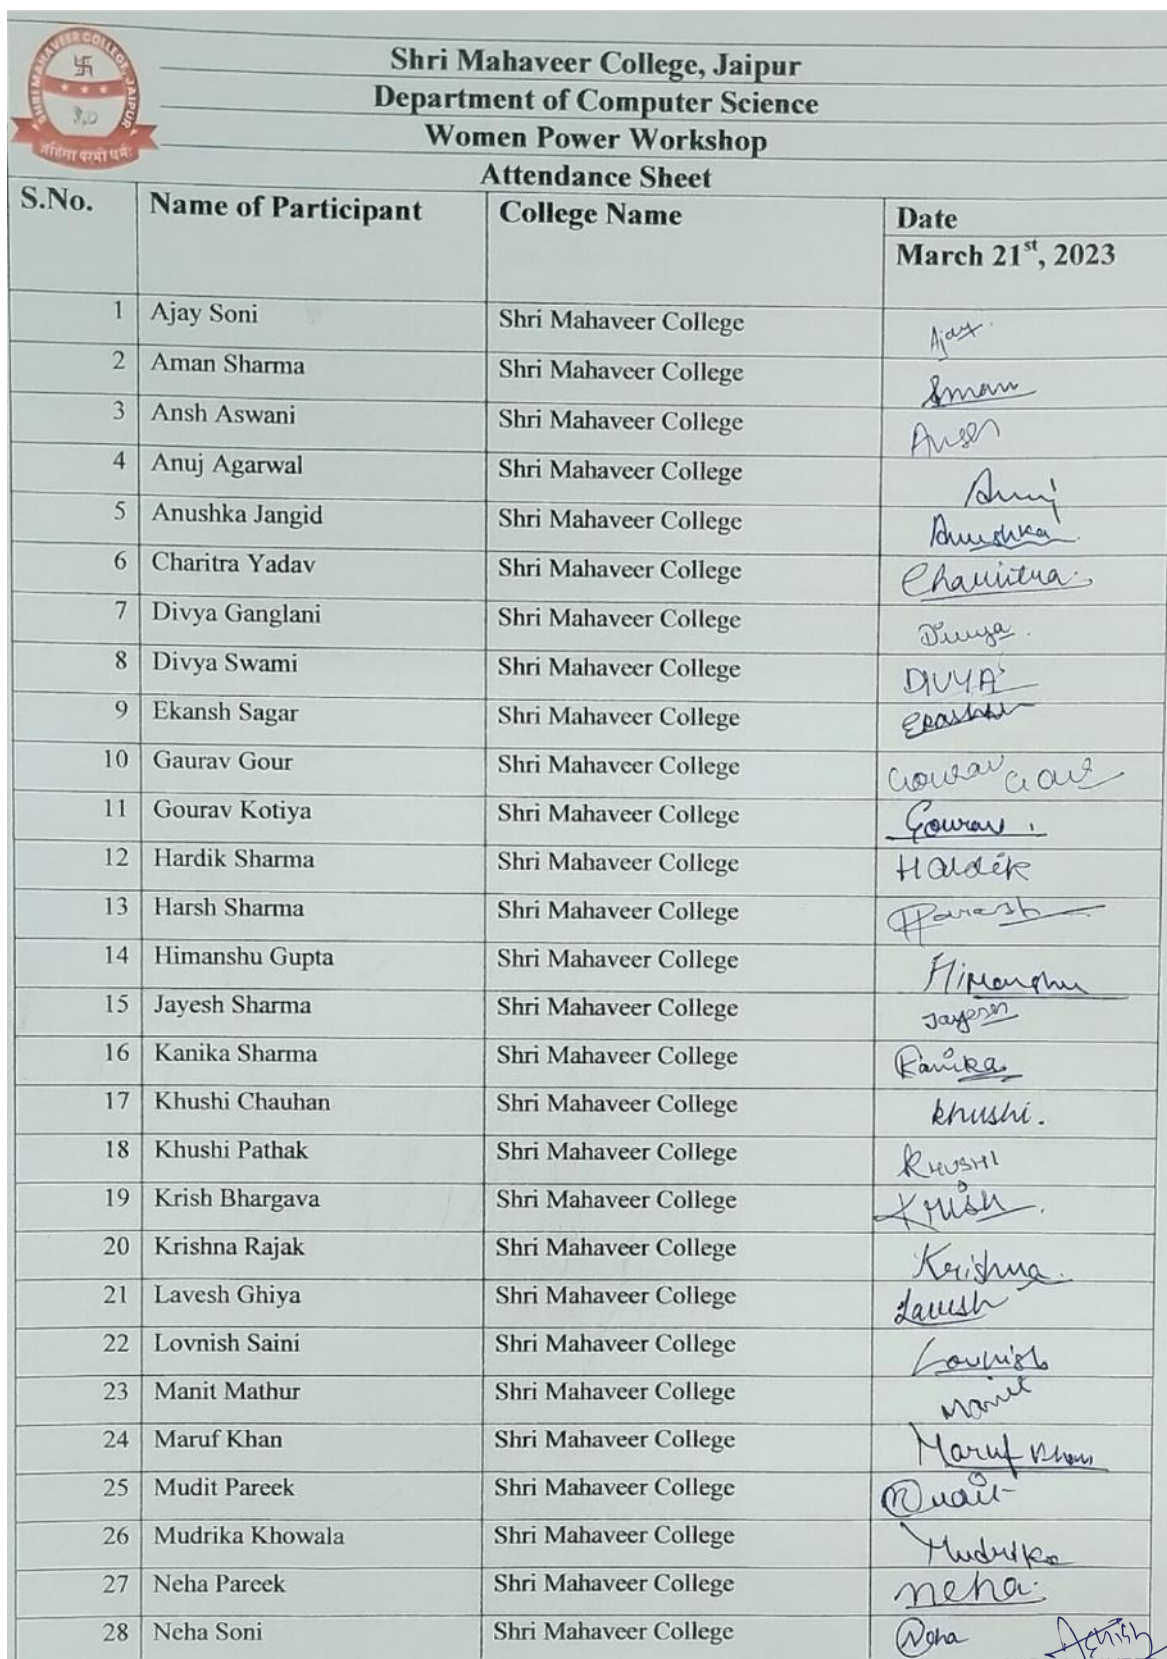 SHRI MAHAVEER COLLEGE, JAIPUR
अहिंसा परमो धर्मः
Shri Mahaveer College, Jaipur
Department of Computer Science
Women Power Workshop
Attendance Sheet
S.No. Name of Participant College Name Date
March 21st, 2023
1 Ajay Soni Shri Mahaveer College Ajay
2 Aman Sharma Shri Mahaveer College Aman
3 Ansh Aswani Shri Mahaveer College Ansh
4 Anuj Agarwal Shri Mahaveer College Anuj
5 Anushka Jangid Shri Mahaveer College Anushka
6 Charitra Yadav Shri Mahaveer College Charitra
7 Divya Ganglani Shri Mahaveer College Divya
8 Divya Swami Shri Mahaveer College DIVYA
9 Ekansh Sagar Shri Mahaveer College
10 Gaurav Gour Shri Mahaveer College Gourav Gour
11 Gourav Kotiya Shri Mahaveer College Gourav
12 Hardik Sharma Shri Mahaveer College Hardik
13 Harsh Sharma Shri Mahaveer College Harsh
14 Himanshu Gupta Shri Mahaveer College Himanshu
15 Jayesh Sharma Shri Mahaveer College Jayesh
16 Kanika Sharma Shri Mahaveer College Kanika
17 Khushi Chauhan Shri Mahaveer College khushi.
18 Khushi Pathak Shri Mahaveer College KHUSHI
19 Krish Bhargava Shri Mahaveer College Krish
20 Krishna Rajak Shri Mahaveer College Krishna
21 Lavesh Ghiya Shri Mahaveer College Lavesh
22 Lovnish Saini Shri Mahaveer College Lovnish
23 Manit Mathur Shri Mahaveer College Manit
24 Maruf Khan Shri Mahaveer College Maruf Khan
25 Mudit Pareek Shri Mahaveer College Mudit
26 Mudrika Khowala Shri Mahaveer College Mudrika
27 Neha Pareek Shri Mahaveer College neha
28 Neha Soni Shri Mahaveer College Neha Ashish